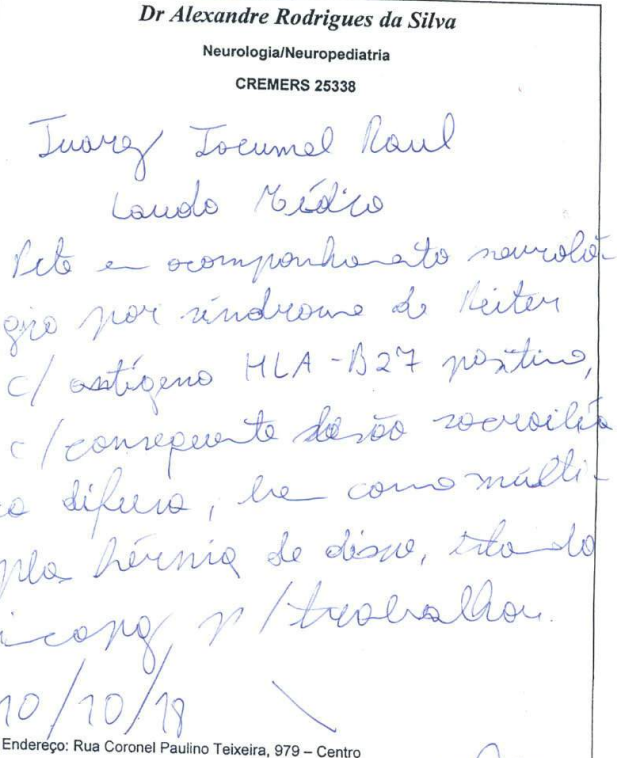 Dr Alexandre Rodrigues da Silva
Neurologia/Neuropediatria
CREMERS 25338
Juarez Raul
Laudo Médico
Pcte em acompanhamento neuroló-
gico por síndrome de Reiter
c/ antígeno HLA-B27 positivo,
c/consequente lesão sacroilía
ca difusa, bem como múlti-
pla hérnia de disco, estando
incapaz p/trabalhar.
10/10/18
Endereço: Rua Coronel Paulino Teixeira, 979 – Centro